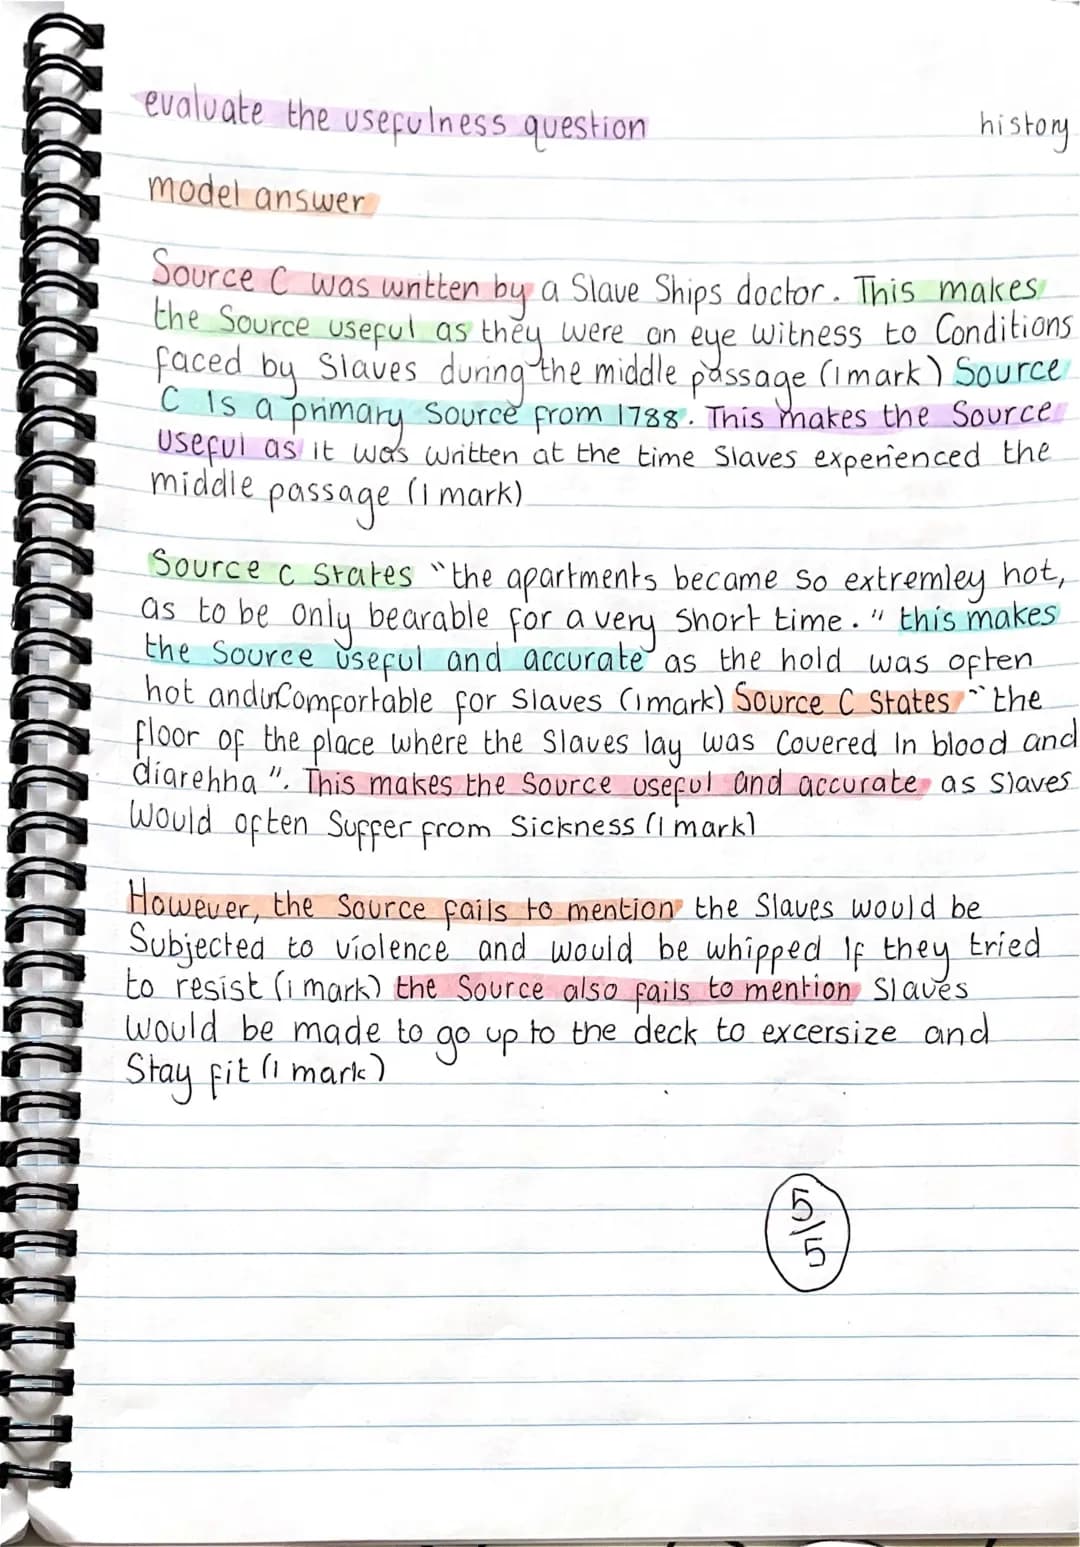 evaluate the usefulness question
history
model answer
Source C was written by a Slave Ships doctor. This makes
the Source useful as they were an eye witness to Conditions
faced by Slaves during the middle passage (1mark) Source
C Is a primary Source from 1788. This makes the Source
useful as it was written at the time Slaves experienced the
middle passage (1 mark)
Source C States "the apartments became so extremley hot,
as to be only bearable for a very Short time." this makes
the Source useful and accurate as the hold was often
hot and uncomfortable for Slaves (1mark) Source C States "the
floor of the place where the Slaves lay was Covered In blood and
diarehha". This makes the Source useful and accurate as Slaves
Would often Suffer from Sickness (1 mark)
However, the Source fails to mention the Slaves would be
Subjected to violence and would be whipped If they tried
to resist (1 mark) the Source also fails to mention Slaves
would be made to go up to the deck to excersize and
Stay fit (1 mark)
5/5